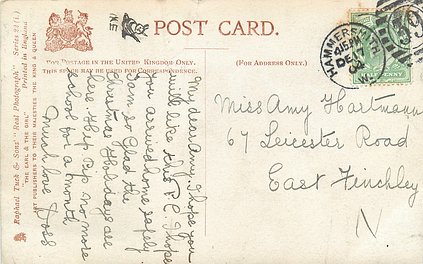 POST CARD.
FOR POSTAGE IN THE UNITED KINGDOM ONLY,
THIS SPACE MAY BE USED FOR CORRESPONDENCE.
(FOR ADDRESS ONLY.)
HAMMERSMITH
4 15 PM
DE
HALFPENNY
Raphael Tuck & Sons' "Real Photograph" Series
"THE EARL & THE GIRL"
Printed in England
ART PUBLISHERS TO THEIR MAJESTIES THE KING & QUEEN
My dear Amy, I hope you
will like this P.C. I hope
you arrived home safely.
I am so glad the
Christmas Holidays are
here Hip Hip no more
school for a month
Much love Doss
Miss Amy Hartmann
67 Leicester Road
East Finchley
N